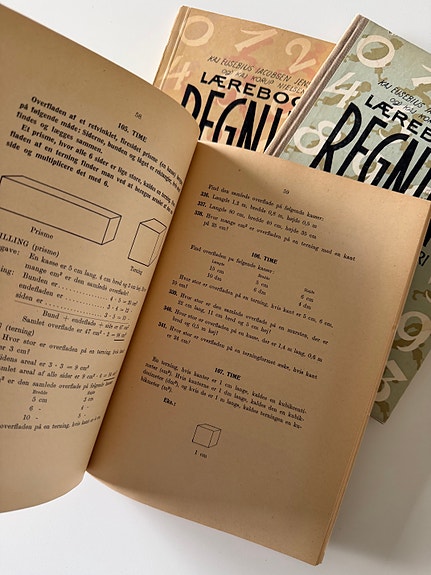 KAI EUSEBIUS JACOBSEN JEN
OG KAJ NØRUP NIELSEN
LÆREBOG
REGNI
KAI EUSEBIUS JACOBS
LÆREBO
REGN
58
105. TIME
Overfladen af et retvinklet, firesidet prisme (en kasse)
på følgende måde: Siderne, bunden og låget er rektangler,
findes og lægges sammen.
Et prisme, hvor alle 6 sider er lige store, kaldes en terning.
fladen af en terning finder man ved at beregne arealet af
side og multiplicere det med 6.
Prisme
Terning
ILLING (prisme)
gave: En kasse er 5 cm lang, 4 cm bred og 3 cm
mange cm² er den samlede overflade?
ning: Bunden er
endefladen er
siden er
Bund + endeflade + side = 47 cm²
Samlet overflade er 47 cm² · 2 =
(terning)
Hvor stor er overfladen på en terning, hvis
er 3 cm?
idens areal er 3 · 3 = 9 cm²
mlet areal af alle sider er 9 · 6 =
er den samlede overflade af følgende
Bredde
5 cm
6 -
10 -
overfladen på en terning, hvis kant
59
Find den samlede overflade af følgende kasser:
336. Længde 1,2 m, bredde 0,8 m, højde 0,5 m
337. Længde 80 cm, bredde 40 cm, højde 35 cm
338. Hvor mange cm² er overfladen på en terning med en kant
på 35 cm?
106. TIME
Find overfladen på følgende kasser:
Længde Bredde Højde
15 cm 8 cm 6 cm
16 dm 5 dm 4 dm
Hvor stor er overfladen på en terning, hvis kant er 5 cm, 6 cm,
339. Hvor stor er den samlede overflade på en mursten, der er
23 cm lang, 11 cm bred og 5 cm høj?
340. Hvor stor er overfladen på en kasse, der er 1,4 m lang, 0,8 m
bred og 0,5 m høj?
341. Hvor stor er overfladen på en terningformet æske, hvis kant
er 24 cm?
107. TIME
En terning, hvis kanter er 1 cm lange, kaldes en kubikcenti-
meter (cm³). Hvis kanterne er 1 dm lange, kaldes den en kubik-
decimeter (dm³), og hvis de er 1 m lange, kaldes terningen en ku-
bikmeter (m³).
Eks.:
1 cm